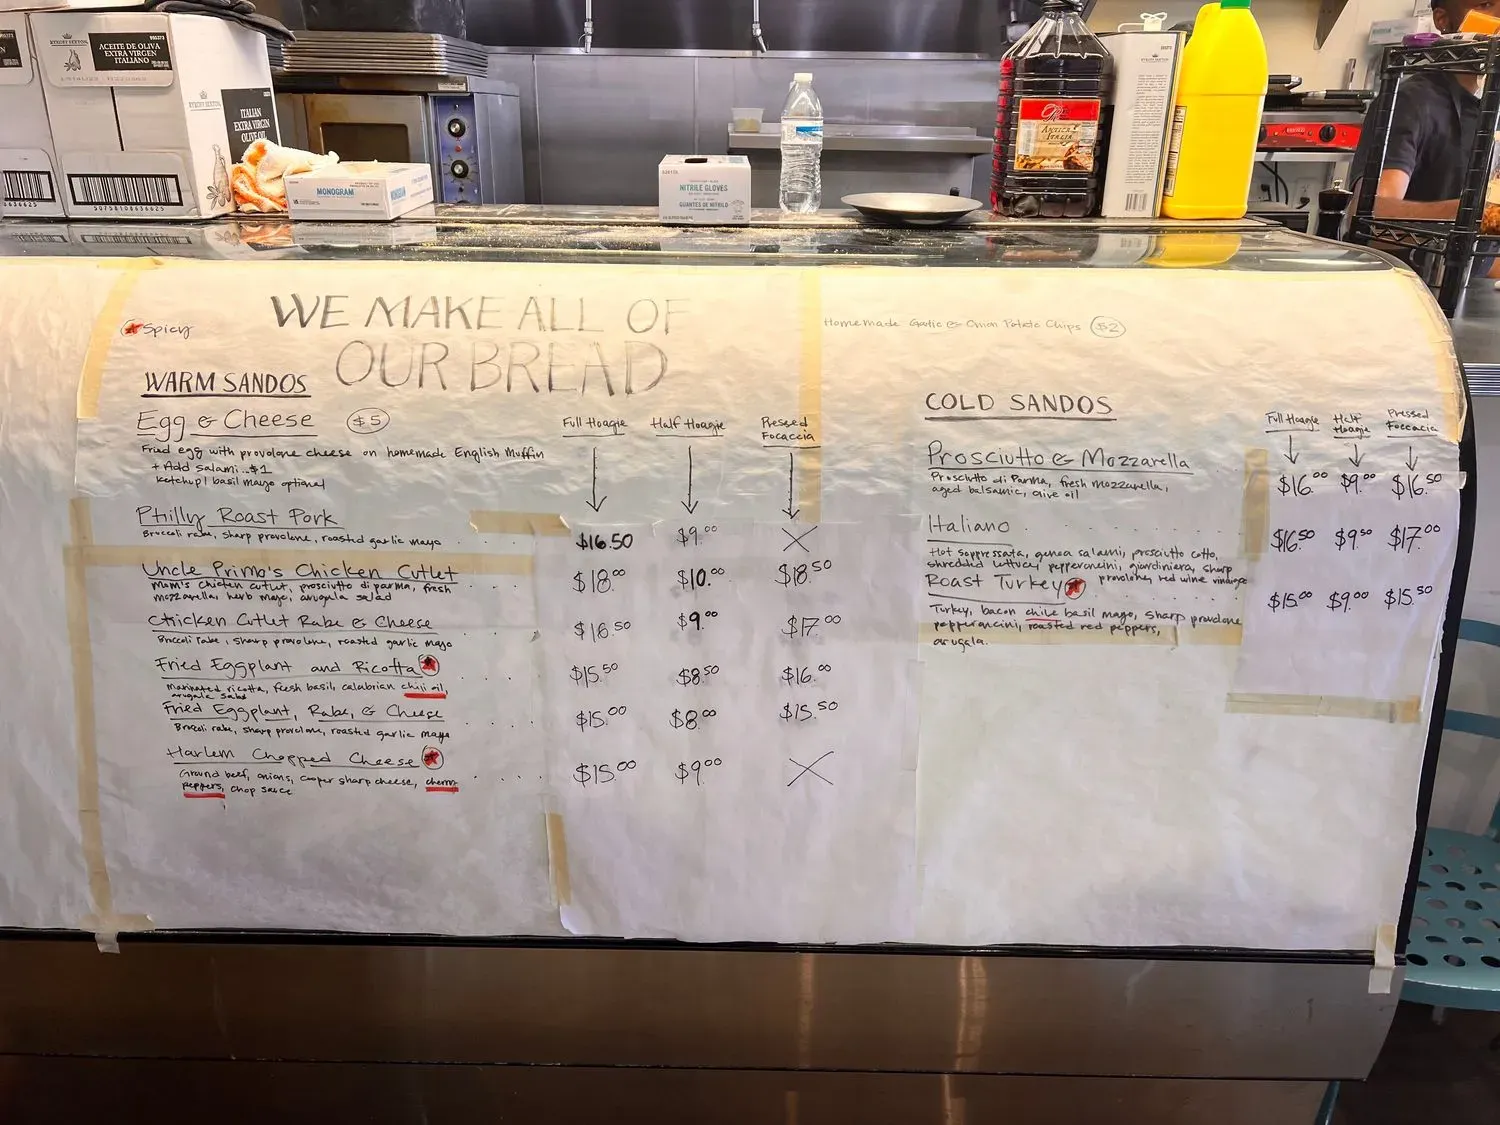 995373
ACEITE DE OLIVA
EXTRA VIRGEN
ITALIANO
RYKOFF SEXTON
RYKOFF SEXTON
ITALIAN
EXTRA VIRGIN
OLIVE OIL
636625
50758108636625
MONOGRAM
MONOGRAM
NITRILE GLOVES
GUANTES DE NITRILO
ANTICA
ITALIA
995373
RYKOFF SEXTON
★ Spicy
WE MAKE ALL OF
OUR BREAD
Homemade Garlic & Onion Potato Chips $2
WARM SANDOS
Egg & Cheese $5
Full Hoagie Half Hoagie Pressed Focaccia
Fried egg with provolone cheese on homemade English Muffin
+ Add salami..$1
ketchup/basil mayo optional
Philly Roast Pork $16.50 $9.00 X
Broccoli rabe, sharp provolone, roasted garlic mayo
Uncle Primo's Chicken Cutlet $18.00 $10.00 $18.50
Mom's chicken cutlet, prosciutto di parma, fresh
mozzarella, herb mayo, arugula salad
Chicken Cutlet Rabe & Cheese $16.50 $9.00 $17.00
Broccoli rabe, sharp provolone, roasted garlic mayo
Fried Eggplant and Ricotta ★ $15.50 $8.50 $16.00
Marinated ricotta, fresh basil, calabrian chili oil,
arugula salad
Fried Eggplant, Rabe, & Cheese $15.00 $8.00 $15.50
Broccoli rabe, sharp provolone, roasted garlic mayo
Harlem Chopped Cheese ★ $15.00 $9.00 X
Ground beef, onions, cooper sharp cheese, cherry
peppers, chop sauce
COLD SANDOS
Full Hoagie Half Hoagie Pressed Foccacia
Prosciutto & Mozzarella $16.00 $9.00 $16.50
Prosciutto di Parma, fresh mozzarella,
aged balsamic, olive oil
Italiano $16.50 $9.50 $17.00
Hot soppressata, genoa salami, prosciutto cotto,
shredded lettuce, pepperoncini, giardiniera, sharp
provolone, red wine vinaigre
Roast Turkey ★ $15.00 $9.00 $15.50
Turkey, bacon chile basil mayo, sharp provolone
pepperoncini, roasted red peppers,
arugula.